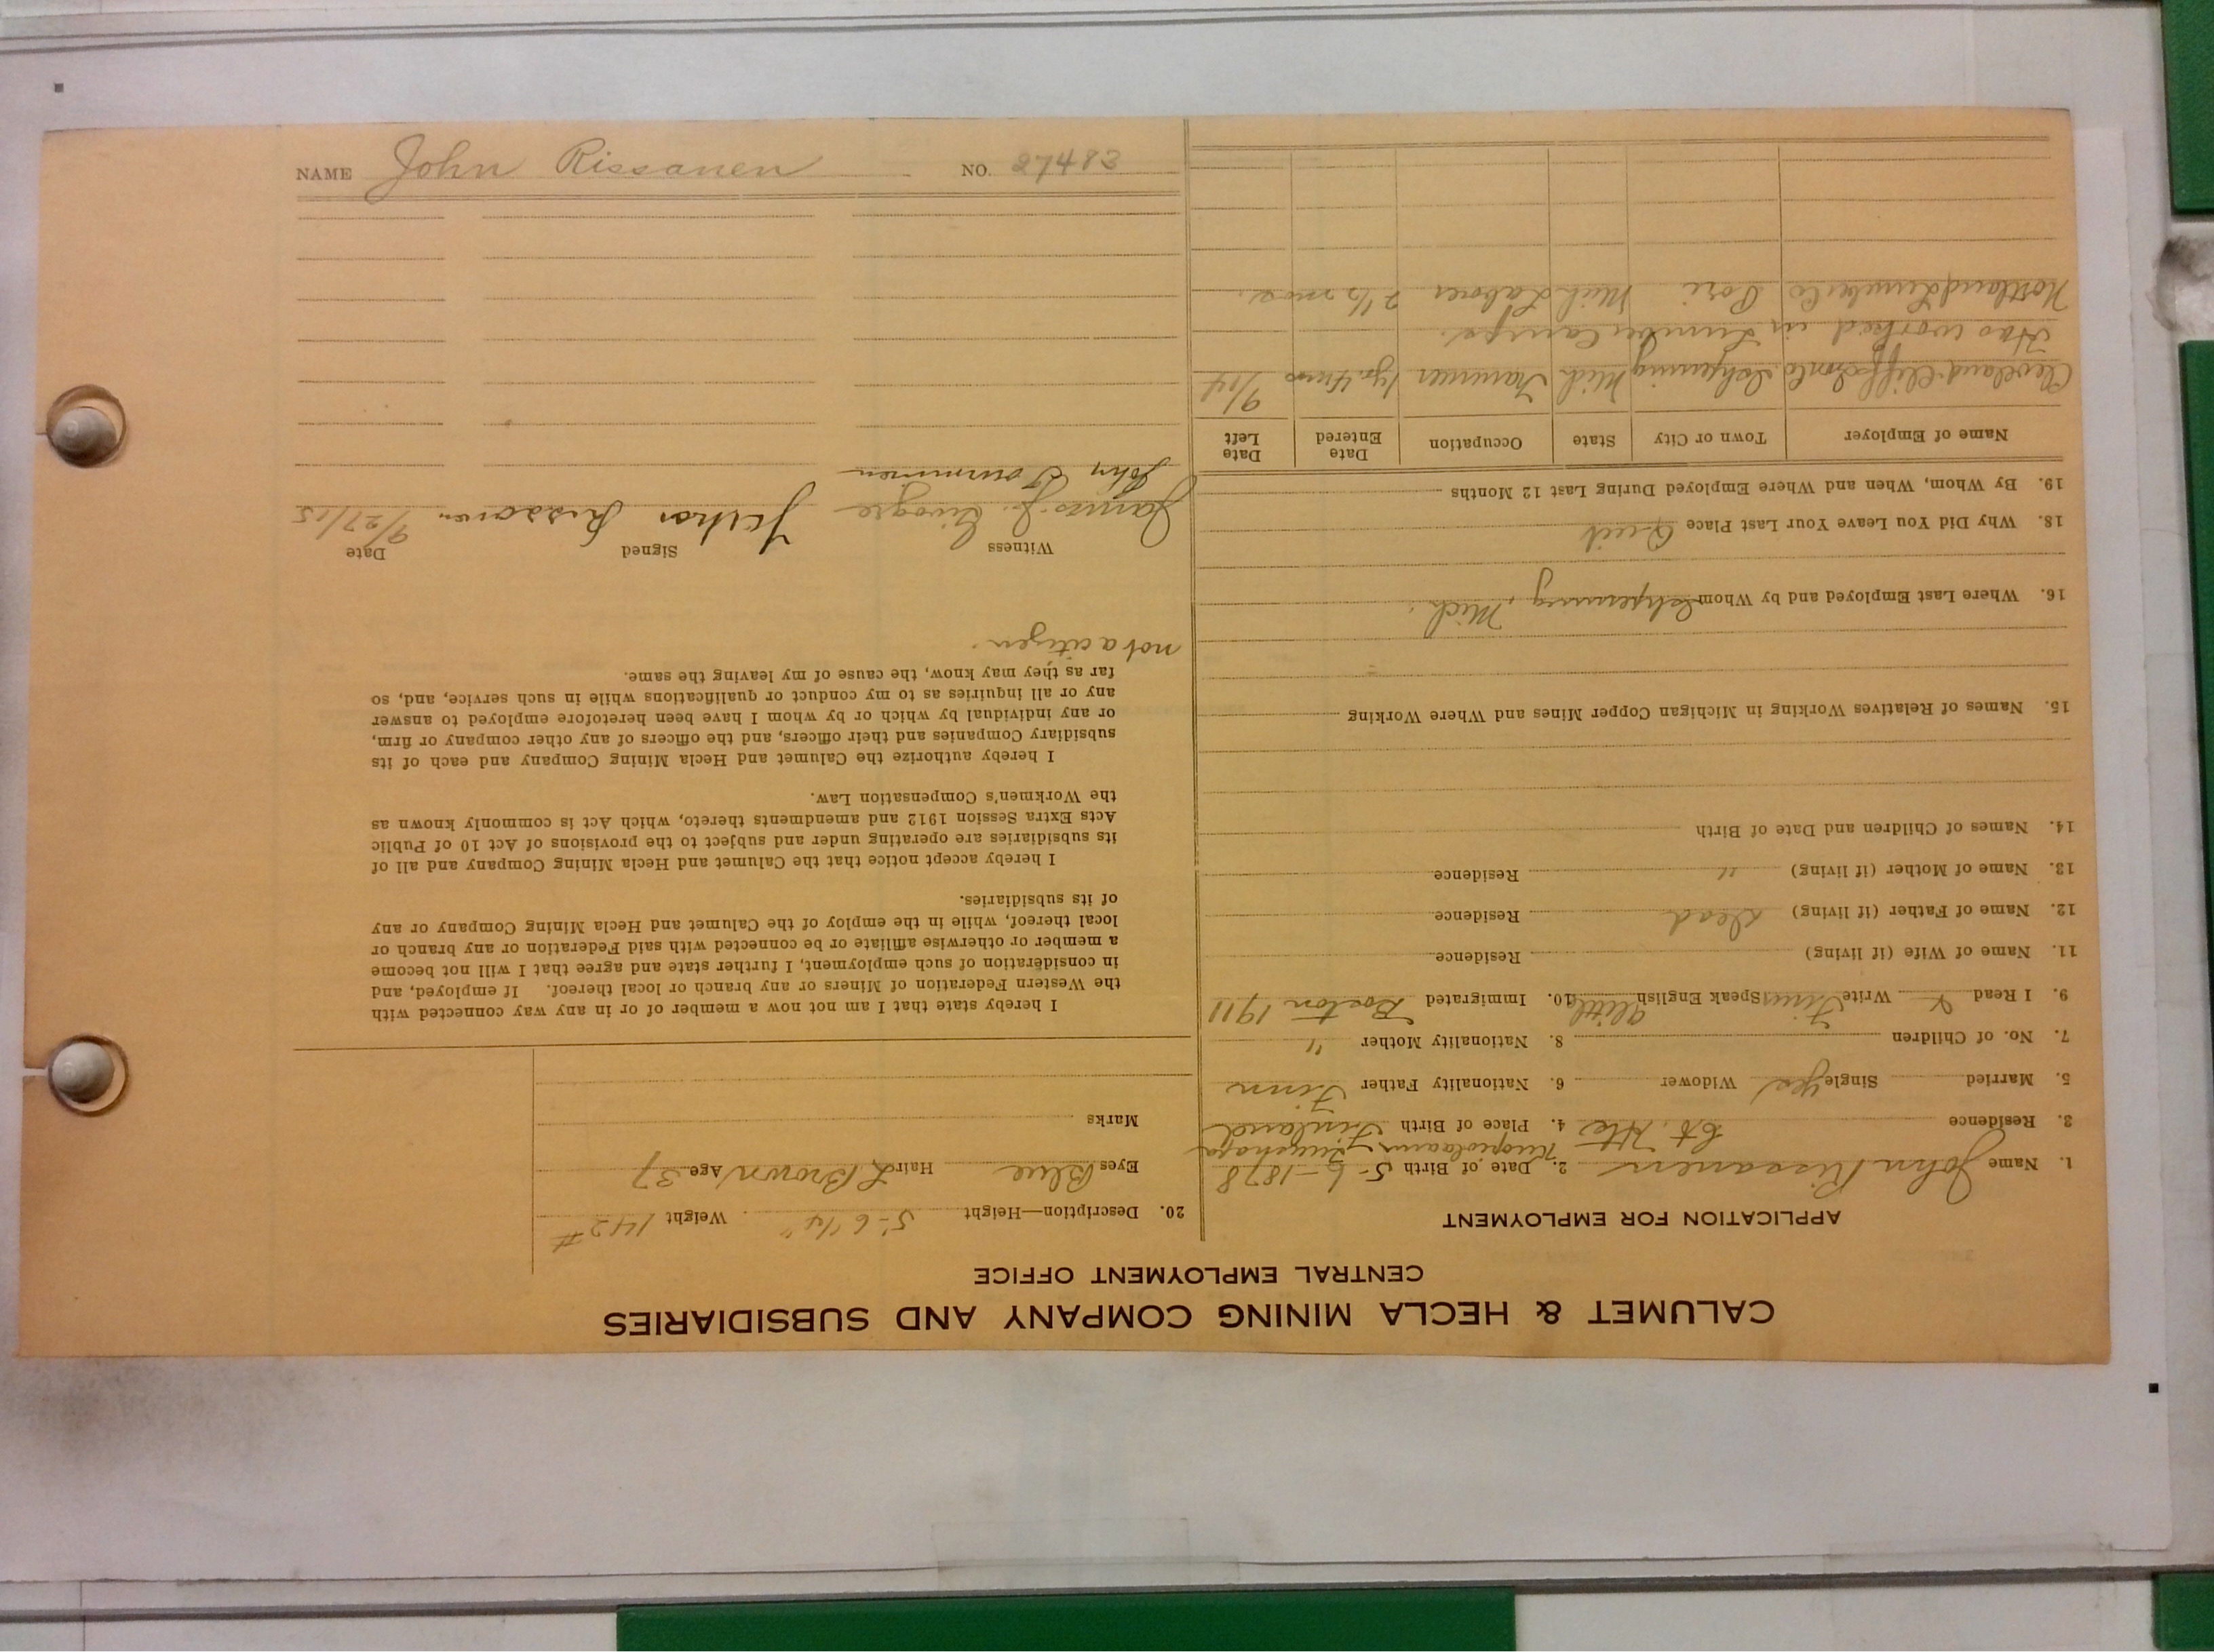 CALUMET & HECLA MINING COMPANY AND SUBSIDIARIES
CENTRAL EMPLOYMENT OFFICE
APPLICATION FOR EMPLOYMENT
1. Name John Rissanen 2. Date of Birth 5-6-1878
3. Residence Ct. Hse 4. Place of Birth Finland
5. Married Single Yes Widower 6. Nationality Father Finn
7. No. of Children 8. Nationality Mother "
9. I Read Write Finn Speak English little 10. Immigrated Boston 1911
11. Name of Wife (if living) Residence
12. Name of Father (if living) Dead Residence
13. Name of Mother (if living) " Residence
14. Names of Children and Date of Birth
15. Names of Relatives Working in Michigan Copper Mines and Where Working
16. Where Last Employed and by Whom Ishpeming, Mich.
18. Why Did You Leave Your Last Place Quit
19. By Whom, When and Where Employed During Last 12 Months
Name of Employer Town or City State Occupation Date Entered Date Left
Cleveland Cliffs Ishpeming Mich Trammer 1 yr. 4 mos 9/14
Has worked in Lumber Camps.
Lumber Co Pori Mich Laborer 2 1/2 mos.
20. Description—Height 5'-6 1/4" Weight 142#
Eyes Blue Hair L Brown Age 37
Marks
I hereby state that I am not now a member of or in any way connected with
the Western Federation of Miners or any branch or local thereof. If employed, and
in consideration of such employment, I further state and agree that I will not become
a member or otherwise affiliate or be connected with said Federation or any branch or
local thereof, while in the employ of the Calumet and Hecla Mining Company or any
of its subsidiaries.
I hereby accept notice that the Calumet and Hecla Mining Company and all of
its subsidiaries are operating under and subject to the provisions of Act 10 of Public
Acts Extra Session 1912 and amendments thereto, which Act is commonly known as
the Workmen's Compensation Law.
I hereby authorize the Calumet and Hecla Mining Company and each of its
subsidiary Companies and their officers, and the officers of any other company or firm,
or any individual by which or by whom I have been heretofore employed to answer
any or all inquiries as to my conduct or qualifications while in such service, and, so
far as they may know, the cause of my leaving the same.
not a citizen.
Witness Signed Date
James J. Rissanen 9/27/15
John
NAME John Rissanen NO. 27483